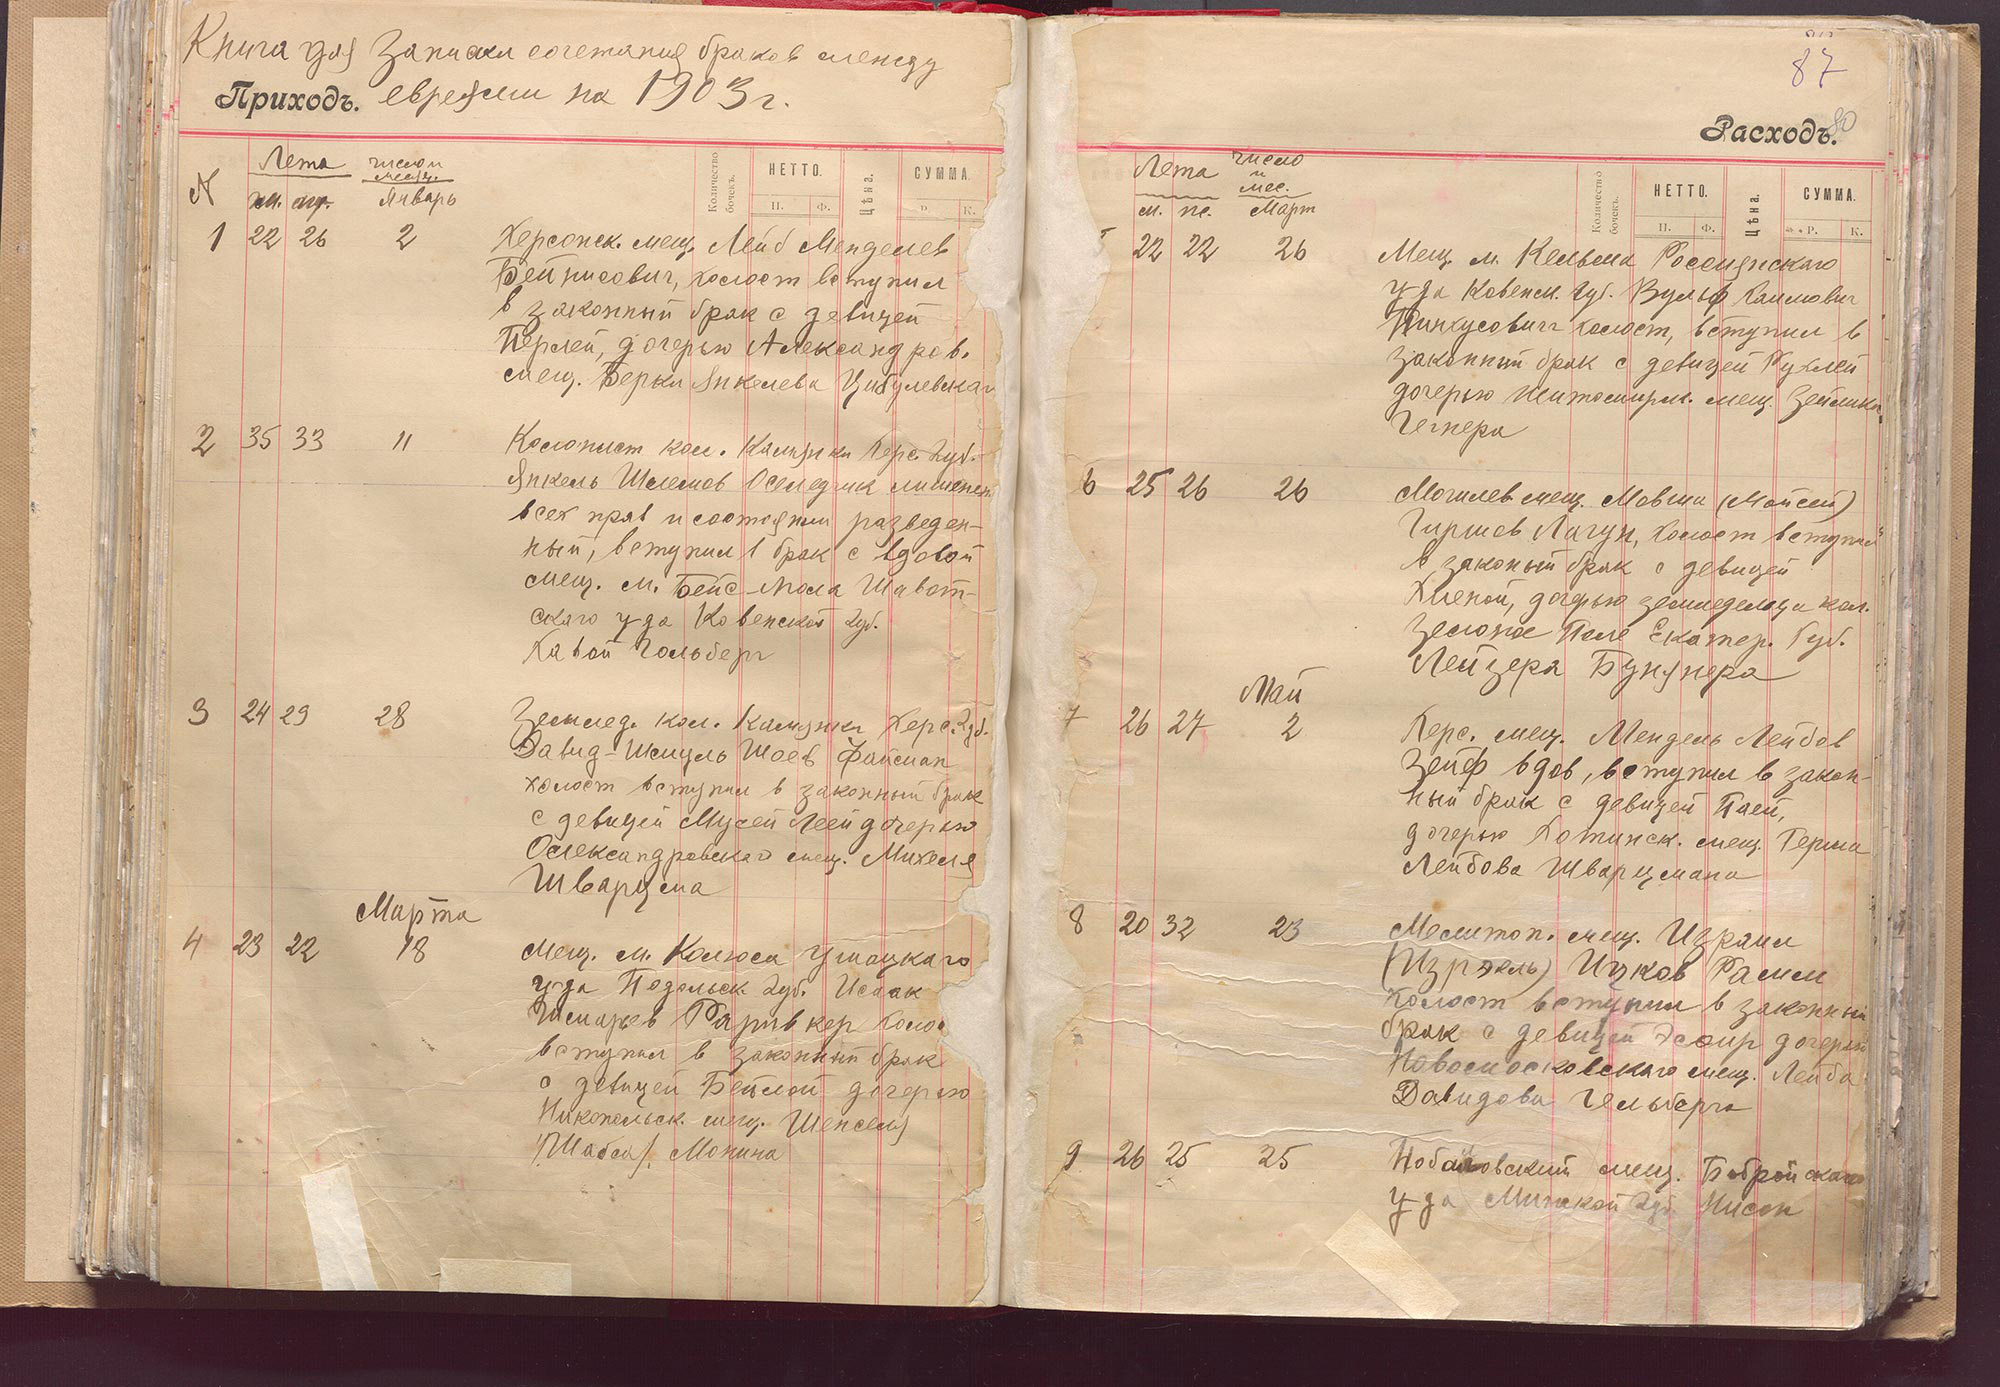 Книга для записки сочетания браков между
Приходъ. евреями на 1903 г.
N Лета число и месяц. Количество бочекъ. НЕТТО. Цѣна. СУММА.
Январь П. Ф. Р. К.
1 22 26 2 Херсонск. мещ. Лейб Менделев
Бейнисович, холост вступил
в законный брак с девицей
Перлей, дочерью Александров.
мещ. Берки Янкелева Цибулевская
2 35 33 11 Колонист кол. Камянки Херс. Губ.
Янкель Шлемов Оселедчик лишенн
всех прав и состоянии разведен-
ный, вступил в брак с вдовой
мещ. м. Бейс-гола Шавот-
скаго у-да Ковенской Губ.
Хавой Гольберг
3 24 29 28 Землед. кол. Камянки Херс. Губ.
Давид-Шмуль Шоев Файсман
холост вступил в законный брак
с девицей Мусей Леей дочерью
Олександровскаго мещ. Михеля
Шварцма
Марта
4 23 22 18 Мещ. м. Колюса Ушацкаго
у-да Подольск. Губ. Исаак
Шмарьев Раривкер холос
вступил в законный брак
с девицей Бейлой дочерью
Никопольск. мещ. Шепселя
/Шабса/. Монина
87
80
Расходъ.
Лета число и мес. Количество бочекъ. НЕТТО. Цѣна. СУММА.
м. же. Март П. Ф. Р. К.
22 22 26 Мещ. м. Кельма Россиянскаго
у-да Ковенск. Губ. Вульф Хаимович
Пинхусович холост, вступил в
законный брак с девицей Рухлей
дочерью Житомирск. мещ. Зейлика
Гегнера
6 25 26 26 Могилев мещ. Мовша (Мойсей)
Гиршов Лагун, холост вступил
в законый брак с девицей
Хиеной, дочерью земледельца кол.
Зеленое Поле Екатер. Губ.
Лейзера Бунянера
Май
7 26 27 2 Херс. мещ. Мендель Лейбов
Зейф вдов, вступил в закон-
ный брак с девицей Паей,
дочерью Хотинск. мещ. Герша
Лейбова Шварцмана
8 20 32 23 Мелитоп. мещ. Израил
(Изрэель) Ицков Рамм
холост вступил в законный
брак с девицей Эсфир дочерью
Новомосковскаго мещ. Лейба
Давидова Гельберга
9 26 25 25 мещ. Бобройскаго
у-да Минской Губ. Нисон